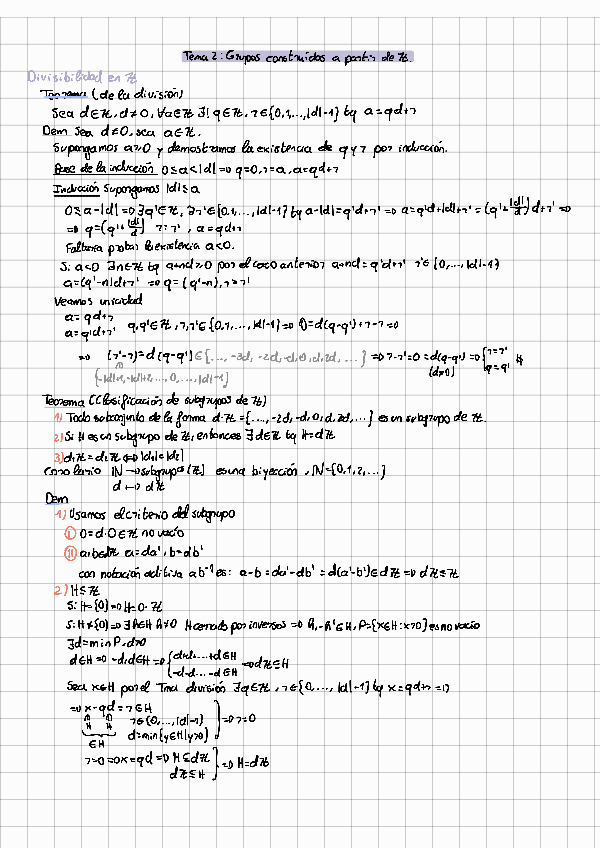 Tema 2: Grupos construidos a partir de ℤ.
Divisibilidad en ℤ
Teorema (de la división)
Sea d∈ℤ, d≠0, ∀a∈ℤ ∃! q∈ℤ, r∈{0,1,...,|d|-1} tq a=qd+r
Dem Sea d≠0, sea a∈ℤ.
Supongamos a≥0 y demostramos la existencia de q y r por inducción.
Base de la inducción 0≤a<|d| => q=0, r=a, a=qd+r
Inducción Supongamos |d|≤a
0≤a-|d| => ∃q'∈ℤ, ∃r'∈{0,1,...,|d|-1} tq a-|d|=q'd+r' => a=q'd+|d|+r'=(q'+|d|/d)d+r' =>
=> q=(q'+|d|/d) r=r', a=qd+r
Faltaría probar la existencia a<0.
Si a<0 ∃n∈ℤ tq a+nd≥0 por el caso anterior a+nd=q'd+r' r'∈{0,...,|d|-1}
a=(q'-n)d+r' => q=(q'-n), r=r'
Veamos unicidad
a=qd+r
a=q'd+r' q,q'∈ℤ, r,r'∈{0,1,...,|d|-1} => 0=d(q-q')+r-r' =>
=> (r'-r)=d(q-q')∈{..., -3d, -2d, -d, 0, d, 2d, ...} => r-r'=0=d(q-q') => {r=r' q=q' #
(d≠0)
{-|d|+1, -|d|+2, ..., 0, ..., |d|-1}
Teorema (Clasificación de subgrupos de ℤ)
1) Todo subconjunto de la forma dℤ={..., -2d, -d, 0, d, 2d, ...} es un subgrupo de ℤ.
2) Si H es un subgrupo de ℤ, entonces ∃d∈ℤ tq H=dℤ
3) d₁ℤ=d₂ℤ <=> |d₁|=|d₂|
Corolario ℕ → subgrupos(ℤ) es una biyección, ℕ={0,1,2,...}
d ↦ dℤ
Dem
1) Usamos el criterio del subgrupo
i 0=d·0∈ℤ no vacío
ii a,b∈dℤ a=da', b=db'
con notación aditiva ab⁻¹ es: a-b=da'-db'=d(a'-b')∈dℤ => dℤ≤ℤ
2) H≤ℤ
Si H={0} => H=0·ℤ
Si H≠{0} => ∃h∈H h≠0 H cerrado por inversos => h,-h∈H, P={x∈H:x>0} es no vacío
∃d=min P, d>0
d∈H => -d,d∈H => {d+d+...+d∈H -d-d...-d∈H => dℤ≤H
Sea x∈H por el Tma división ∃q∈ℤ, r∈{0,...,|d|-1} tq x=qd+r =>
=> x-qd=r∈H
H H r∈{0,...,|d|-1} => r=0
∈H d=min{y∈H|y>0}
r=0 => x=qd => H⊆dℤ
dℤ≤H => H=dℤ